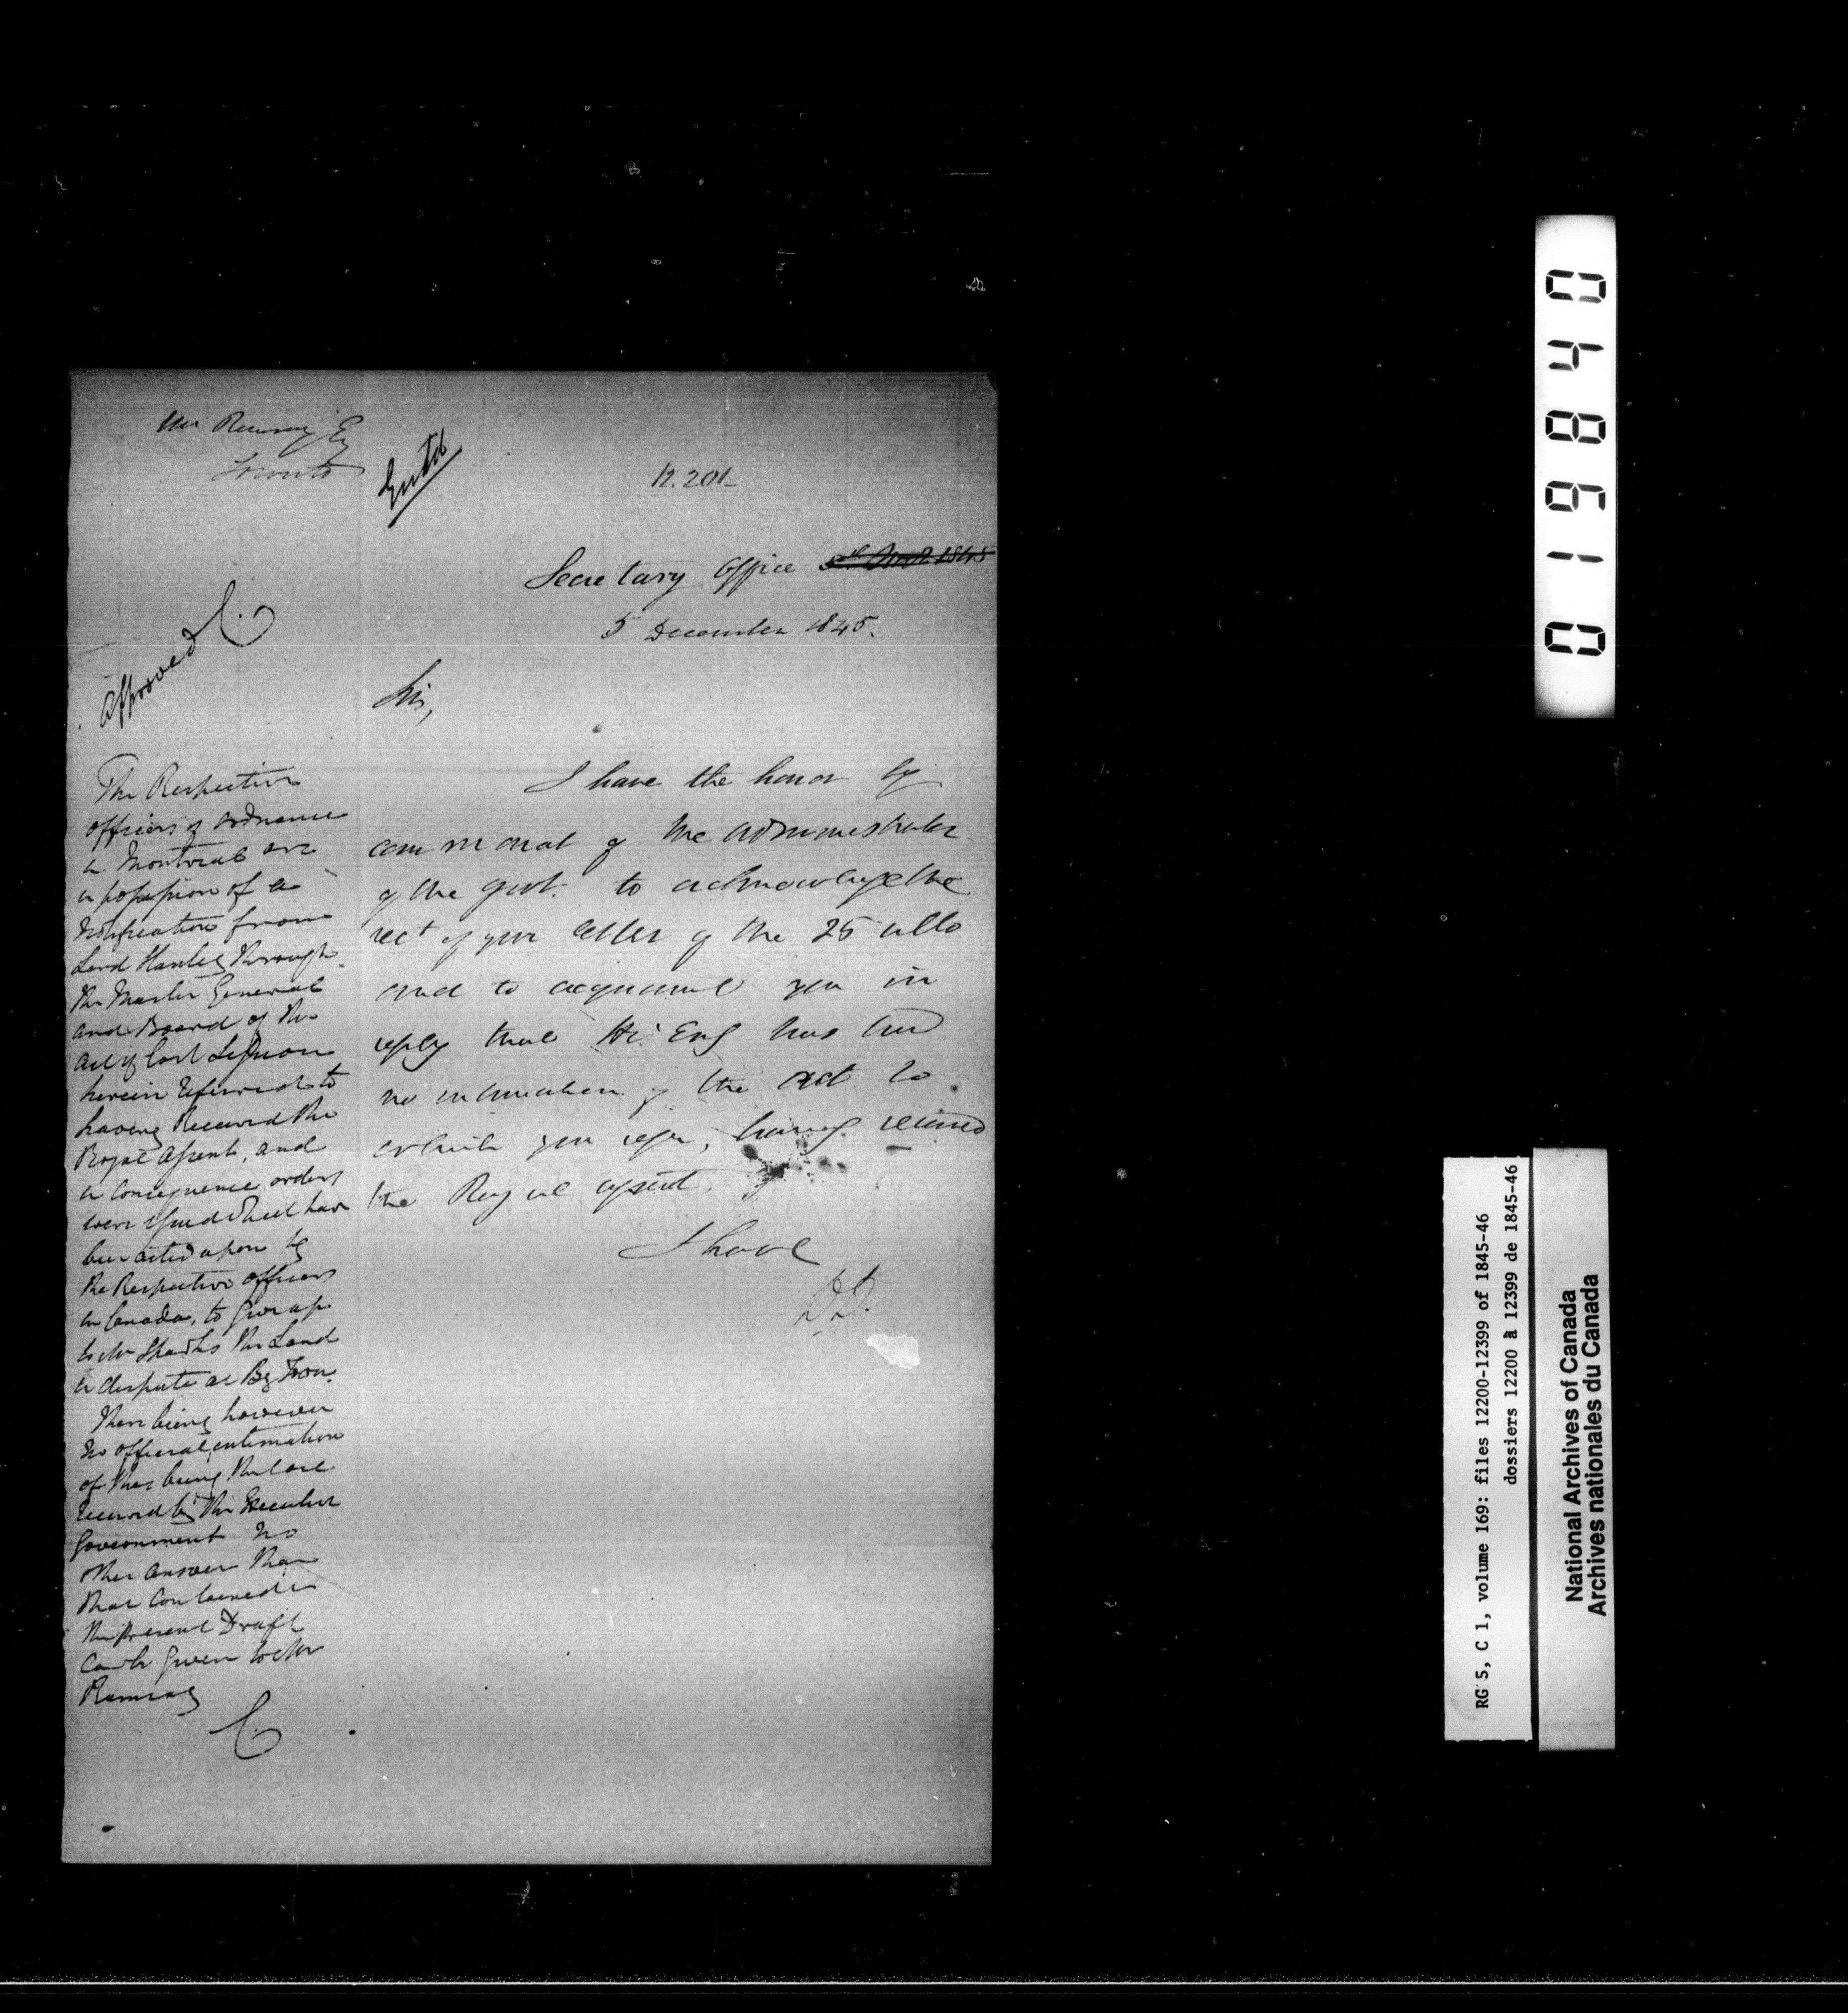 Toronto
Entd
12.201
Secretary Office 5th Novr 1845
5 December 1845.
Approved C
Sir,
I have the honor by
command of the Administrator
of the Govt. to acknowledge the
rect of your letter of the 25 ulto
and to acquaint you in
reply that His Exy has had
no intimation of the act to
which you refer, having received
the Royal assent.
I have
D.D.
The Respective
officers of Ordnance
in Montreal are
in possession of a
Notification from
Lord Stanley through
the Master General
and Board of the
Act of last Session
herein referred to
having Received the
Royal Assent, and
in consequence orders
were issued & that have
been acted upon by
the Respective officers
in Canada, to give up
to Mr Sparks the Land
in dispute at By Town.
There being however
no official intimation
of this being the case
received by the Executive
Government no
other answer than
that contained in
the present Draft
can be given to Mr
Ramsay
C
018840
RG 5, C 1, volume 169: files 12200-12399 of 1845-46
dossiers 12200 à 12399 de 1845-46
National Archives of Canada
Archives nationales du Canada